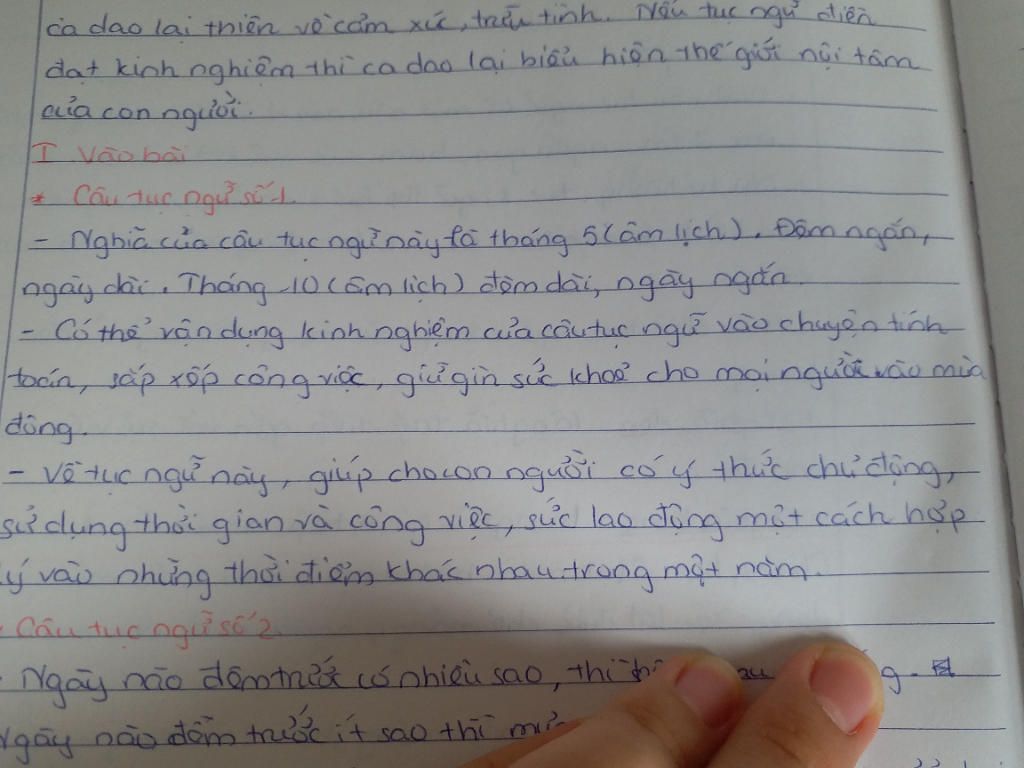 ca dao lại thiên về cảm xúc, trữ tình. Nếu tục ngữ diễn
đạt kinh nghiệm thì ca dao lại biểu hiện thế giới nội tâm
của con người.
I Vào bài
* Câu tục ngữ số 1.
- Nghĩa của câu tục ngữ này là tháng 5 (âm lịch). Đêm ngắn,
ngày dài. Tháng 10 (âm lịch) đêm dài, ngày ngắn.
- Có thể vận dụng kinh nghiệm của câu tục ngữ vào chuyện tính
toán, sắp xếp công việc, giữ gìn sức khoẻ cho mọi người vào mùa
đông.
- Về tục ngữ này, giúp cho con người có ý thức chủ động,
sử dụng thời gian và công việc, sức lao động một cách hợp
lý vào những thời điểm khác nhau trong một năm.
Câu tục ngữ số 2.
Ngày nào đêm trước có nhiều sao, thì
Ngày nào đêm trước ít sao thì